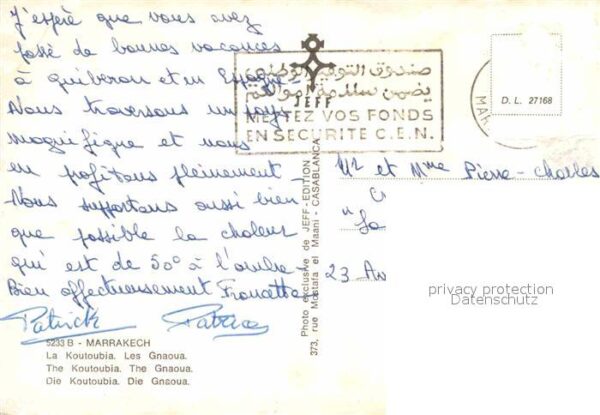 J'espère que vous avez
passé de bonnes vacances
à quiberon et en Espagne.
Nous traversons un pays
magnifique et nous
en profitons pleinement
Nous supportons aussi bien
que possible la chaleur
qui est de 50° à l'ombre
Bien affectueusement
Patrick Patrice
5233 B - MARRAKECH
La Koutoubia. Les Gnaoua.
The Koutoubia. The Gnaoua.
Die Koutoubia. Die Gnaoua.
صندوق التوفير الوطني
يضمن سلامة أموالكم
JEFF
METTEZ VOS FONDS
EN SECURITE C.E.N.
D. L. 27168
MAR
Photo exclusive de JEFF-EDITION
373, rue Mostafa el Maani - CASABLANCA
Mr et Mme Pierre-Charles
23 Av
privacy protection
Datenschutz